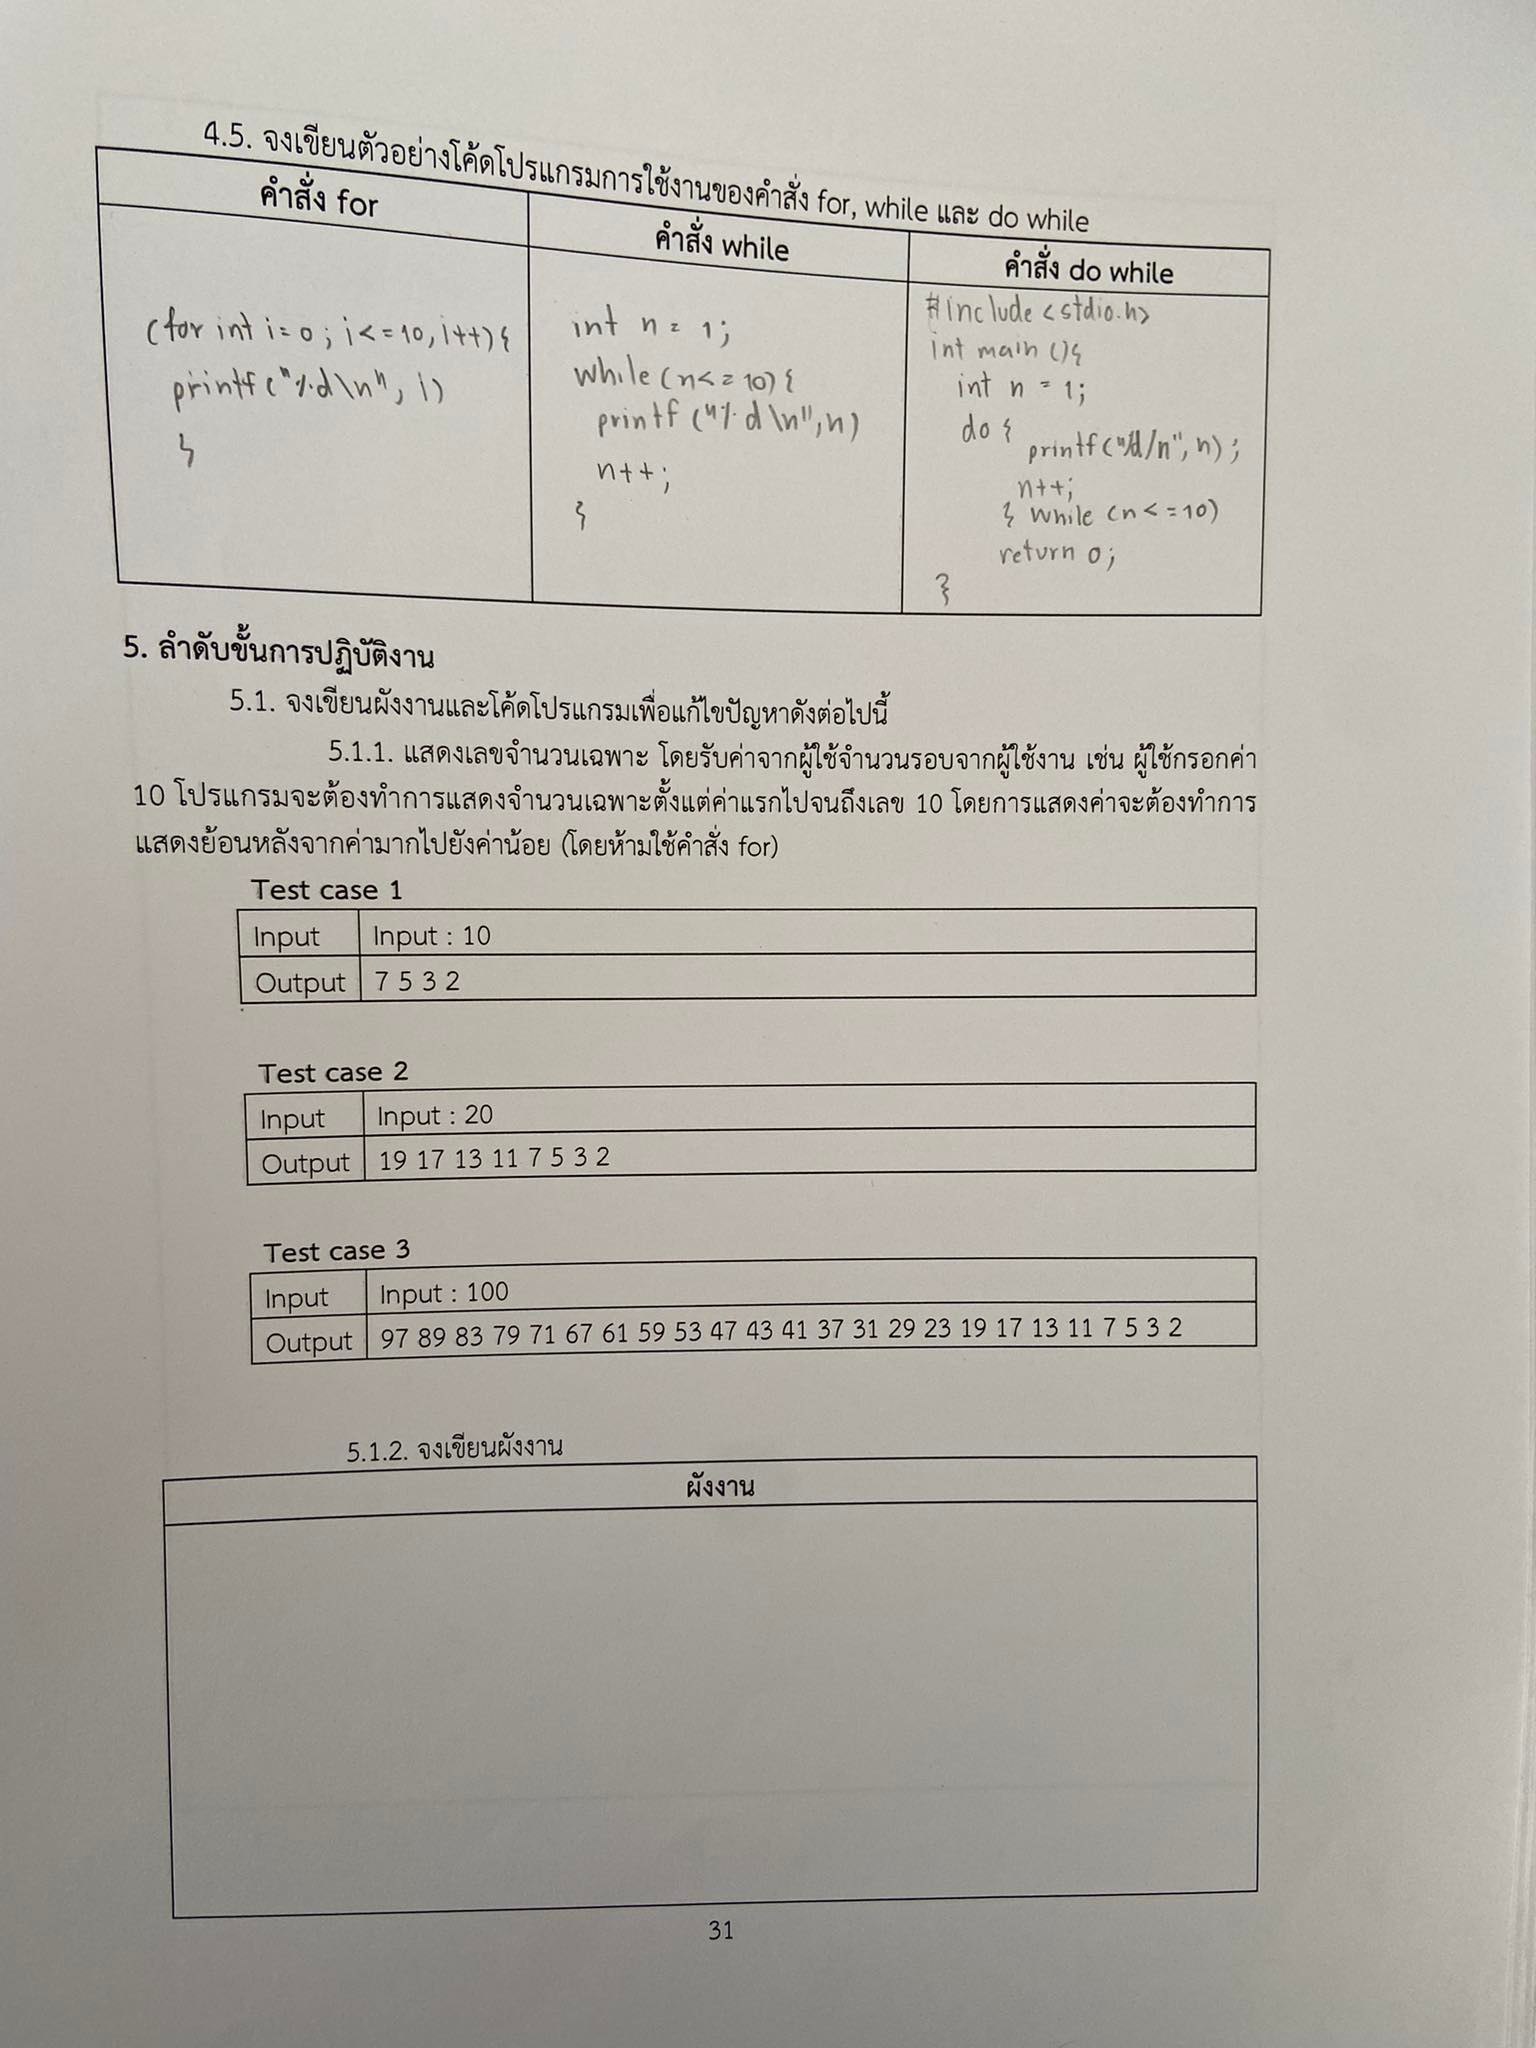 4.5. จงเขียนตัวอย่างโค้ดโปรแกรมการใช้งานของคำสั่ง for, while และ do while
คำสั่ง for
(for int i=0; i<=10, i++){
printf("%d\n", i)
}
คำสั่ง while
int n = 1;
while(n<=10){
printf("%d\n",n)
n++;
}
คำสั่ง do while
#include <stdio.h>
int main (){
int n = 1;
do {
printf("%d/n", n);
n++;
} while (n<=10)
return 0;
}
5. ลำดับขั้นการปฏิบัติงาน
5.1. จงเขียนผังงานและโค้ดโปรแกรมเพื่อแก้ไขปัญหาดังต่อไปนี้
5.1.1. แสดงเลขจำนวนเฉพาะ โดยรับค่าจากผู้ใช้จำนวนรอบจากผู้ใช้งาน เช่น ผู้ใช้กรอกค่า
10 โปรแกรมจะต้องทำการแสดงจำนวนเฉพาะตั้งแต่ค่าแรกไปจนถึงเลข 10 โดยการแสดงค่าจะต้องทำการ
แสดงย้อนหลังจากค่ามากไปยังค่าน้อย (โดยห้ามใช้คำสั่ง for)
Test case 1
Input Input : 10
Output 7 5 3 2
Test case 2
Input Input : 20
Output 19 17 13 11 7 5 3 2
Test case 3
Input Input : 100
Output 97 89 83 79 71 67 61 59 53 47 43 41 37 31 29 23 19 17 13 11 7 5 3 2
5.1.2. จงเขียนผังงาน
ผังงาน
31